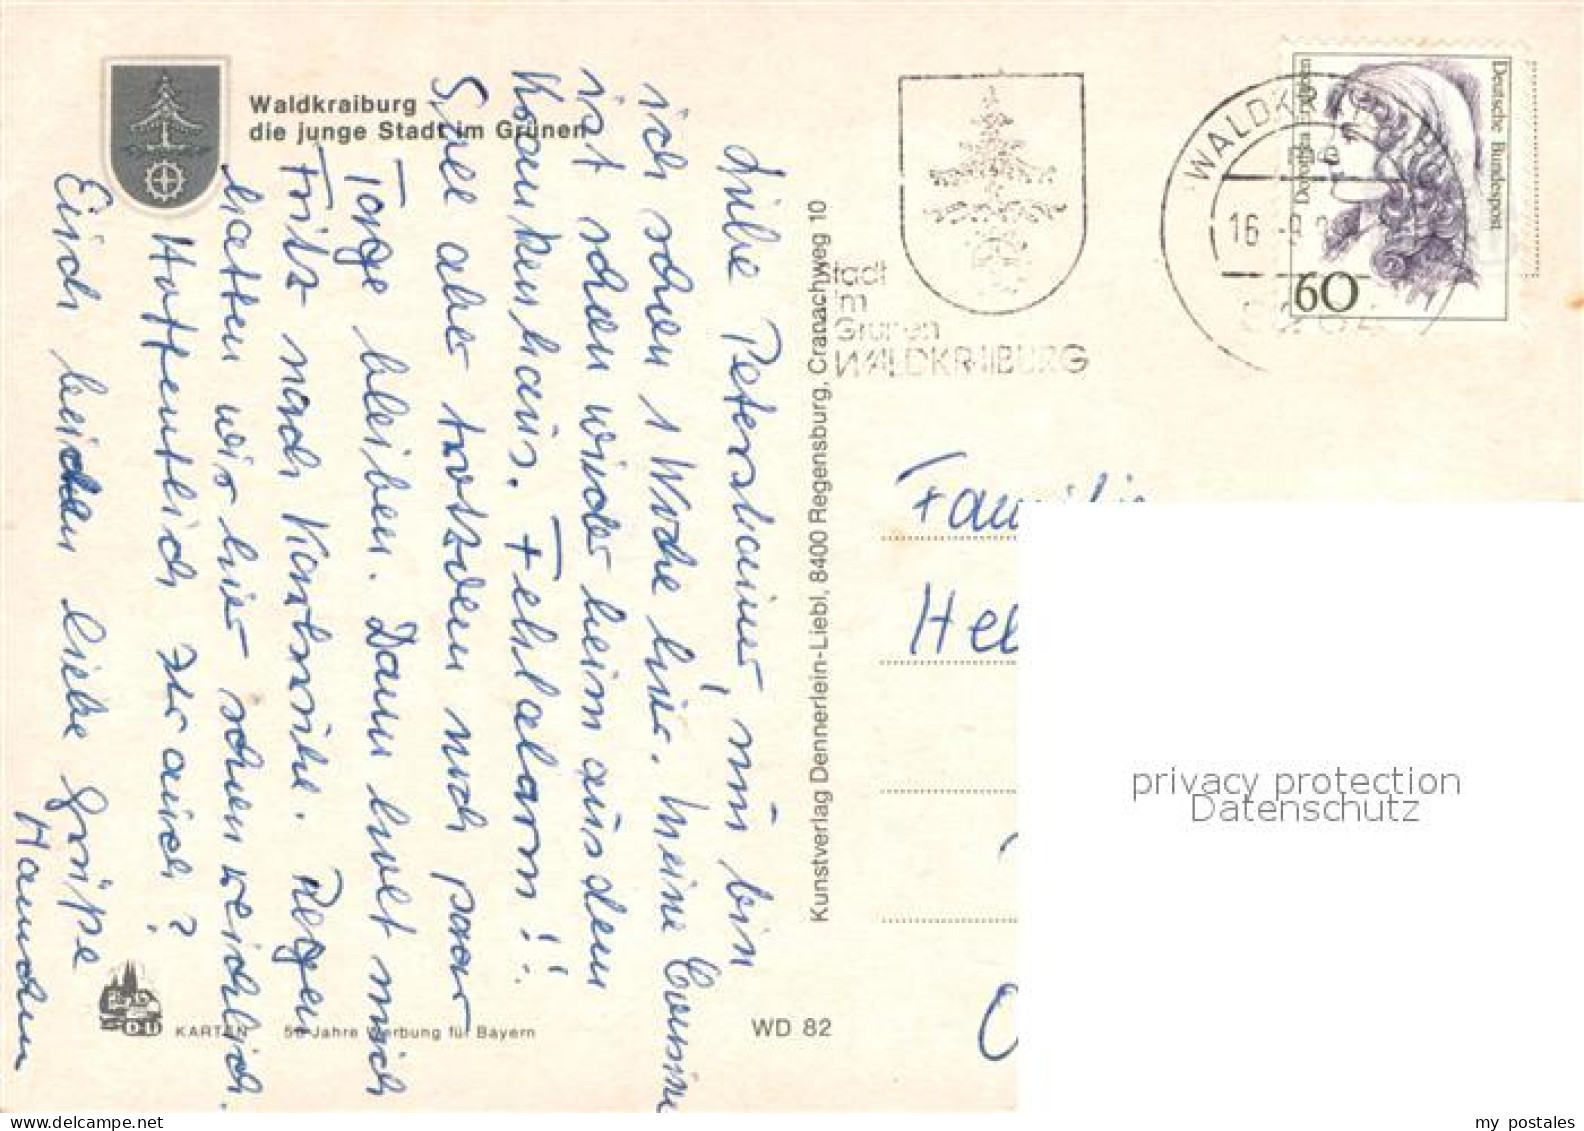 Waldkraiburg
die junge Stadt im Grünen
Liebe Petershainer, nun bin
ich schon 1 Woche hier. Meine Cousine
ist schon wieder heim aus dem
Krankenhaus. Fehlalarm!!
Soll aber trotzdem noch paar
Tage bleiben. Dann holt mich
Fritz nach Karlsruhe. Regen
hatten wir hier schon reichlich.
Hoffentlich Ihr auch?
Euch beiden liebe Grüße
Hannchen
KARTEN 50 Jahre Werbung für Bayern
WD 82
Kunstverlag Dennerlein-Liebl, 8400 Regensburg, Cranachweg 10
Stadt
im
Grünen
WALDKRAIBURG
WALDK
16.-9.
Deutsche Bundespost
Dorothea Erxleben
60
Familie
Hel
privacy protection
Datenschutz
my postales